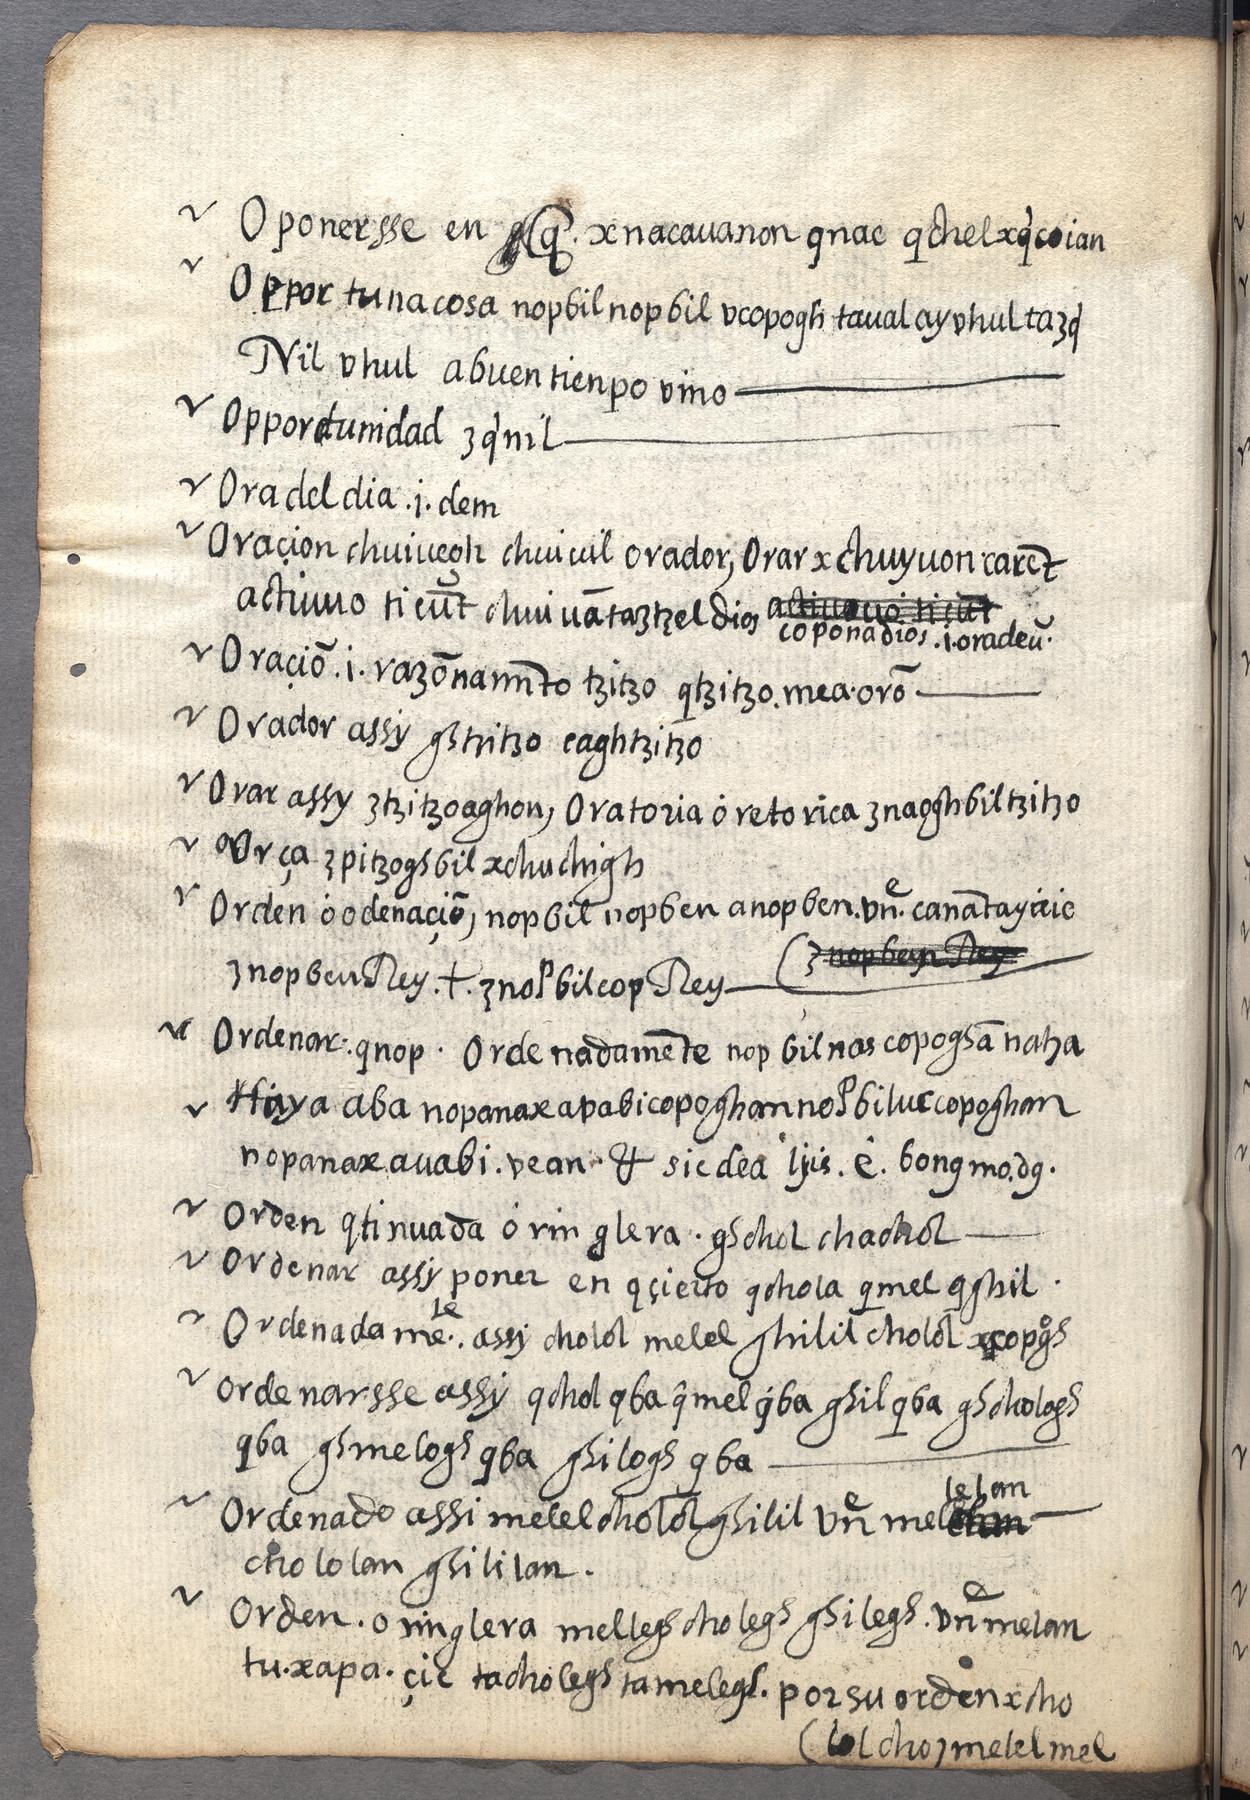 Oponersse en q̃. xnacauanon qnac qchelxq̇coian
Opportuna cosa nopbil nopbil vcopogh taual ay vhul taʒq̇
Nil vhul abuen tienpo vino
Opportunidad ʒq̇nil
Ora del dia .i. dem
Oraçion chuiuegh chuiuil orador, Orar xchuyuon carēt
actiuuo ticūt chuiuā taʒtʒel dios
coponadios .i. oradeū.
Oraçiõ .i. razõnamīto tʒitʒo qtʒitʒo. mea. orō
Orador assy ghtʒitʒo caghtʒitʒo
Orar assy ʒtʒitʒoaghon, Oratoria ó retorica ʒnaoghbiltʒitʒo
Orça ʒpitʒoghbil xchuchigh
Orden ó odenaçiō, nopbil nopben anopben. vñe. canātayicic
ʒnopben Rey. †. ʒnopbilcop Rey (ʒnopben Rey
Ordenar: qnop. Ordenadamēte nop bil nas copoghā natʒa
Haya aba nopanaxapabicopoghan nopbiluc copoghan
nopanax auabi. vean. & sic dea ljis. ė. bong mo. dg.
Orden qtinuada ó ringlera. ghchol chachol
Ordenar assy poner en qçierto qchola qmel qghil.
Ordenadamēte. assy cholol melel ghilil cholol xcopogh
ordenarsse assy qchol qba q̇mel q̇ba ghil qba ghchologh
qba ghmelogh qba ghilogh qba
Ordenado assi melel cholol ghilil vñe melelan
chololan ghililan.
Orden. o ringlera mellegh cholegh ghilegh. vñe melan
tu. xapa. çic tacholegh tamelegh. por su orden xcho
(lol cho) melel mel